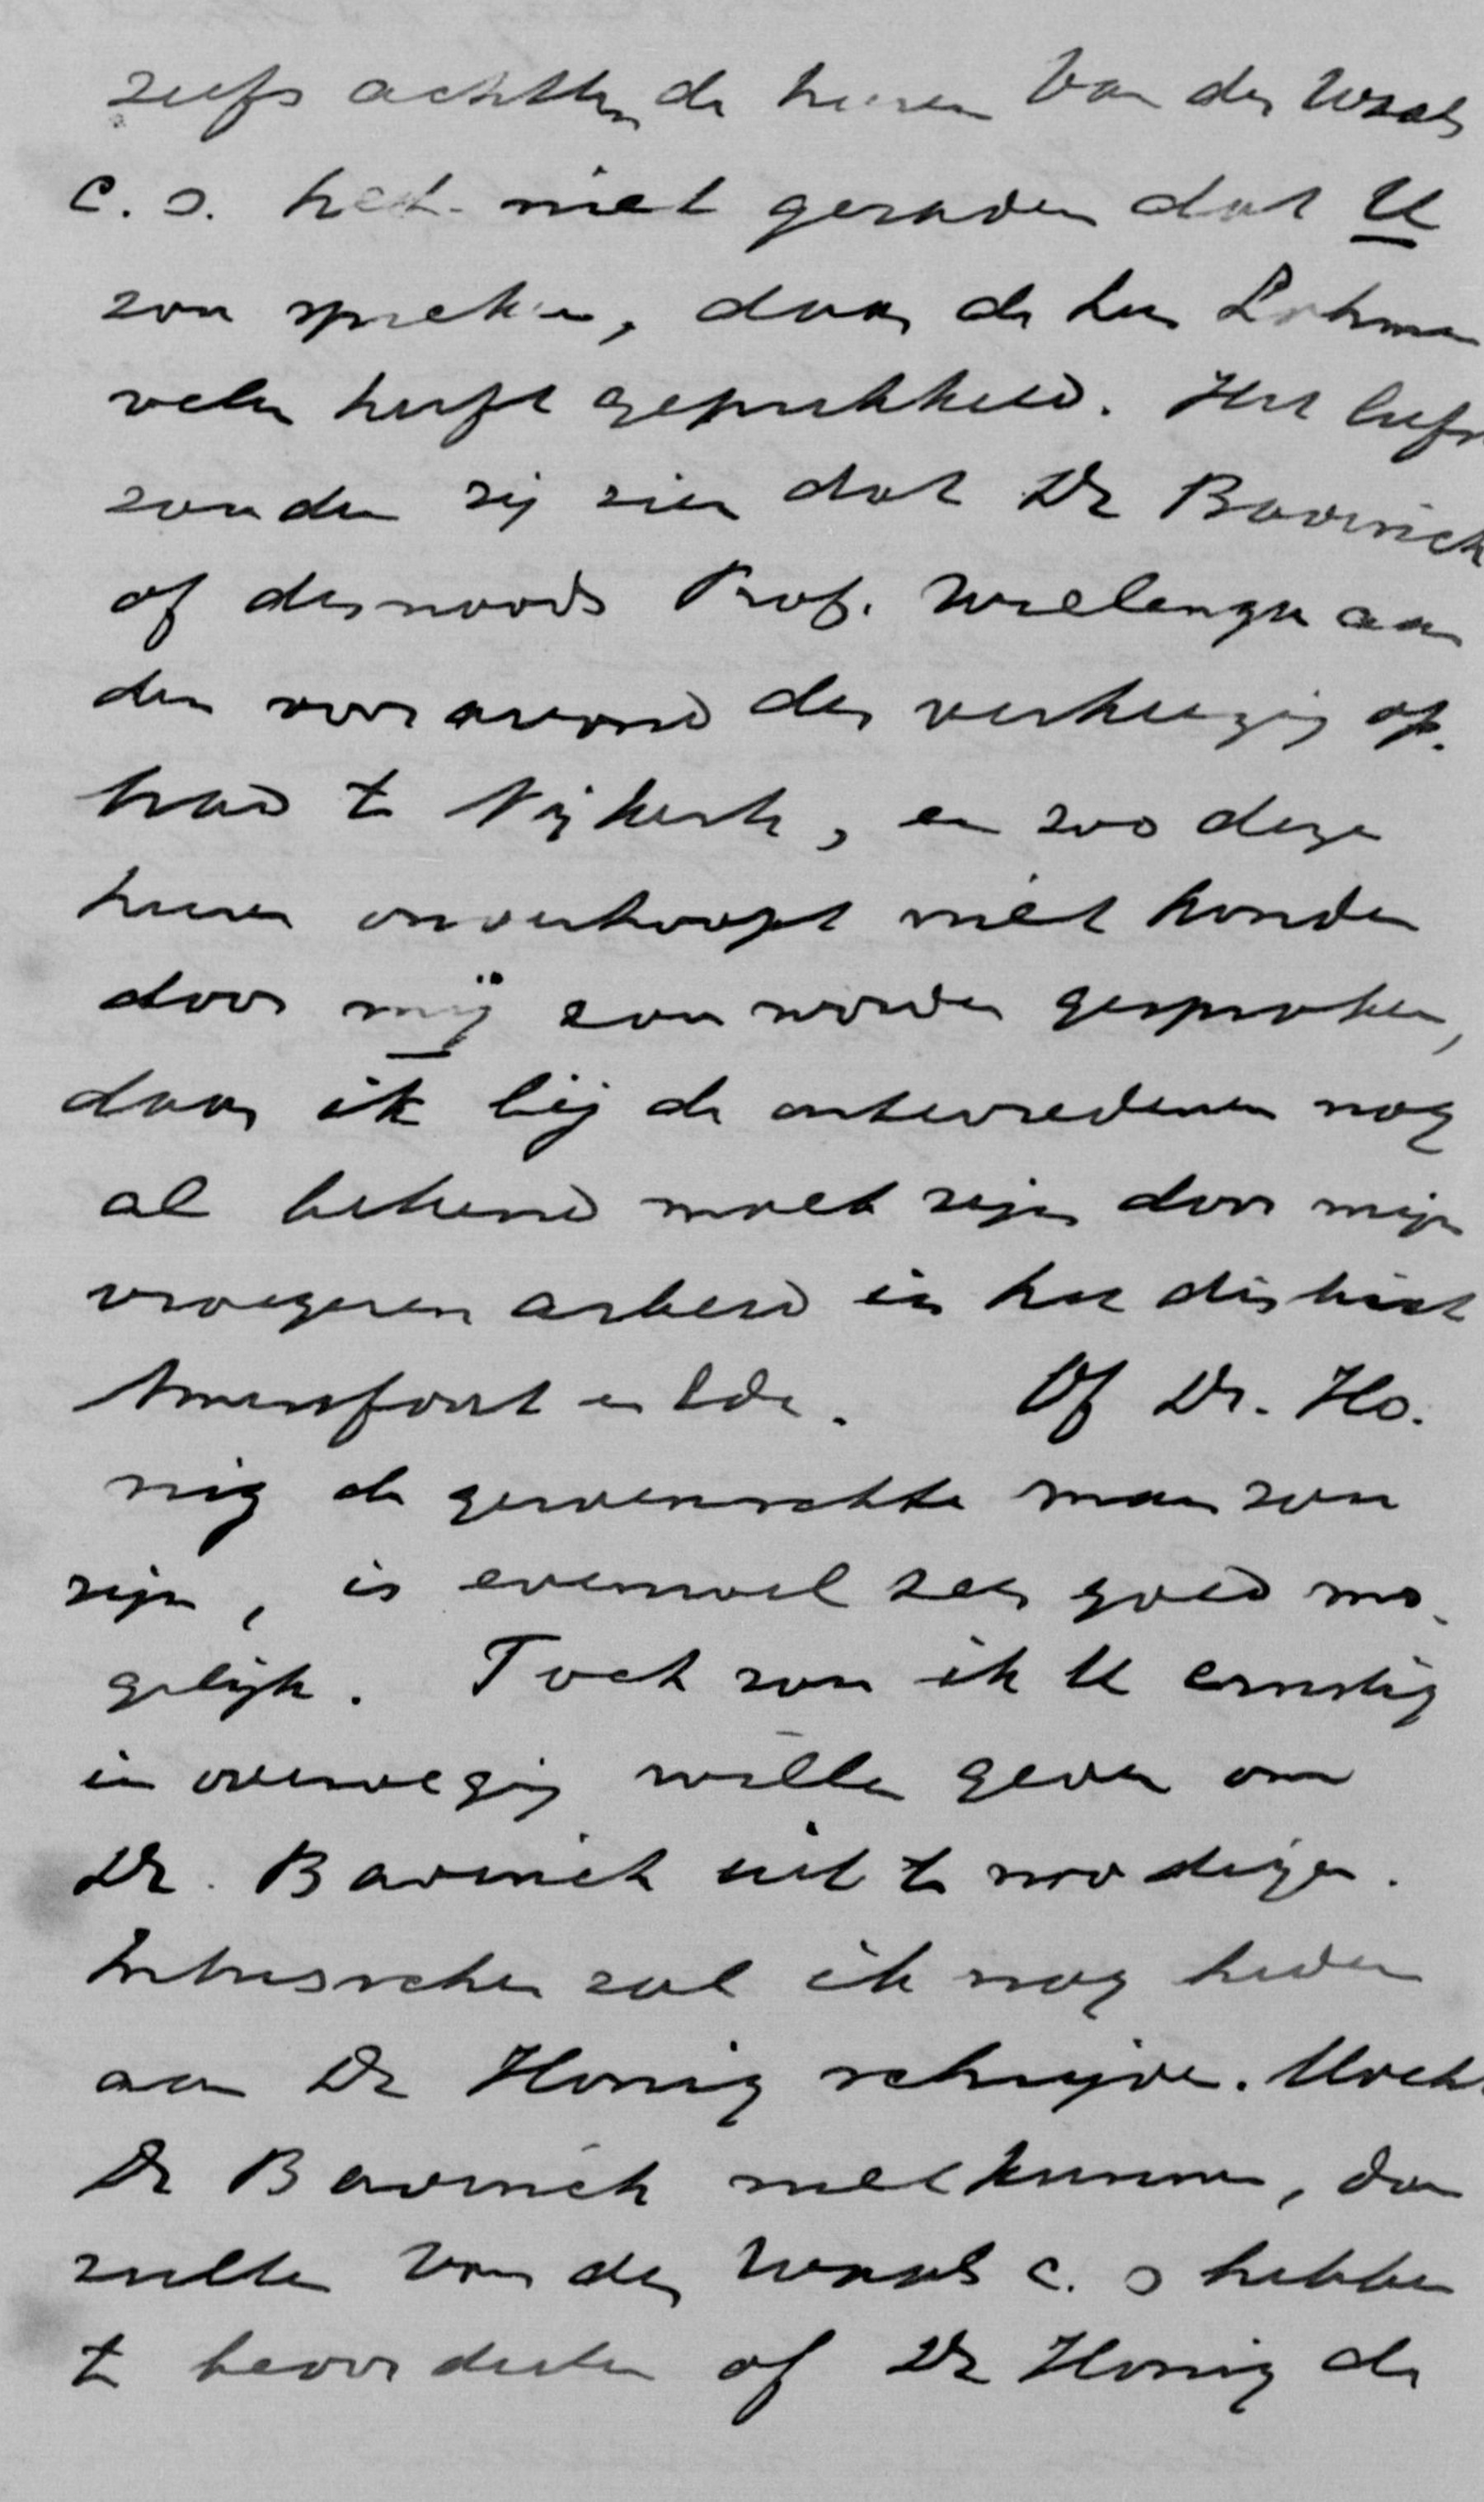 zelfs achtten de heeren Van der Waals
c.s. het niet geraden dat U
zou spreken, daar de heer Lohman
velen heeft geprikkeld. Het liefst
zouden zij zien dat Dr Bavinck
of desnoods Prof. Wielenga aan
den vooravond der verkiezing op-
trad te Nijkerk, en zoo deze
heeren onverhoopt niet konden
door mij zou worden gesproken,
daar ik bij de antevredenen nog
al bekend moet zijn door mijn
vroegeren arbeid in het district
Amersfoort en Ede. Of Dr. Ho-
nig de gewenschte man zou
zijn, is evenwel zeer goed mo-
gelijk. Toch zou ik U ernstig
in overweging willen geven om
Dr. Bavinck uit te noodigen.
Intusschen zal ik nog heden
aan Dr Honig schrijven. Mocht
Dr Bavinck niet kunnen, dan
zullen Van der Waals c.s hebben
te beoordeelen of Dr Honig de